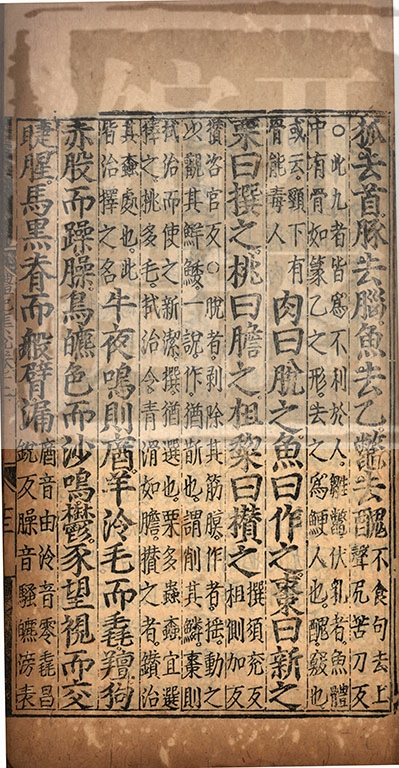 狐去首。豚去腦。魚去乙。鼈去醜
不食句去上
聲尻苦刀反
○此九者皆爲不利於人。雛鼈伏乳者。魚體
中有骨如篆乙之形。去之。爲鯁人也。醜竅也
或云頸下有
骨能毒人
肉曰脫之。魚曰作之。棗曰新之
栗曰撰之。桃曰膽之。柤黎曰攢之
撰須兗反
柤側加反
攢咨官反○脫者。剝除其筋膜。作者。搖動之
以觀其鮮餒。一說作。猶斮也。謂削其鱗。棗則
拭治而使之新潔。撰猶選也。栗多蟲蠹宜選
擇之。桃多毛。拭治令青滑如膽。攢之者。鑽治
其蠹處也。此
皆治擇之名
牛夜鳴則庮。羊泠毛而毳。羶狗
赤股而躁。臊。鳥皫色而沙鳴。鬱。豕望視而交
睫。腥。馬黑脊而般臂漏
庮音由泠音零毳昌
銳反臊音騷皫滂表